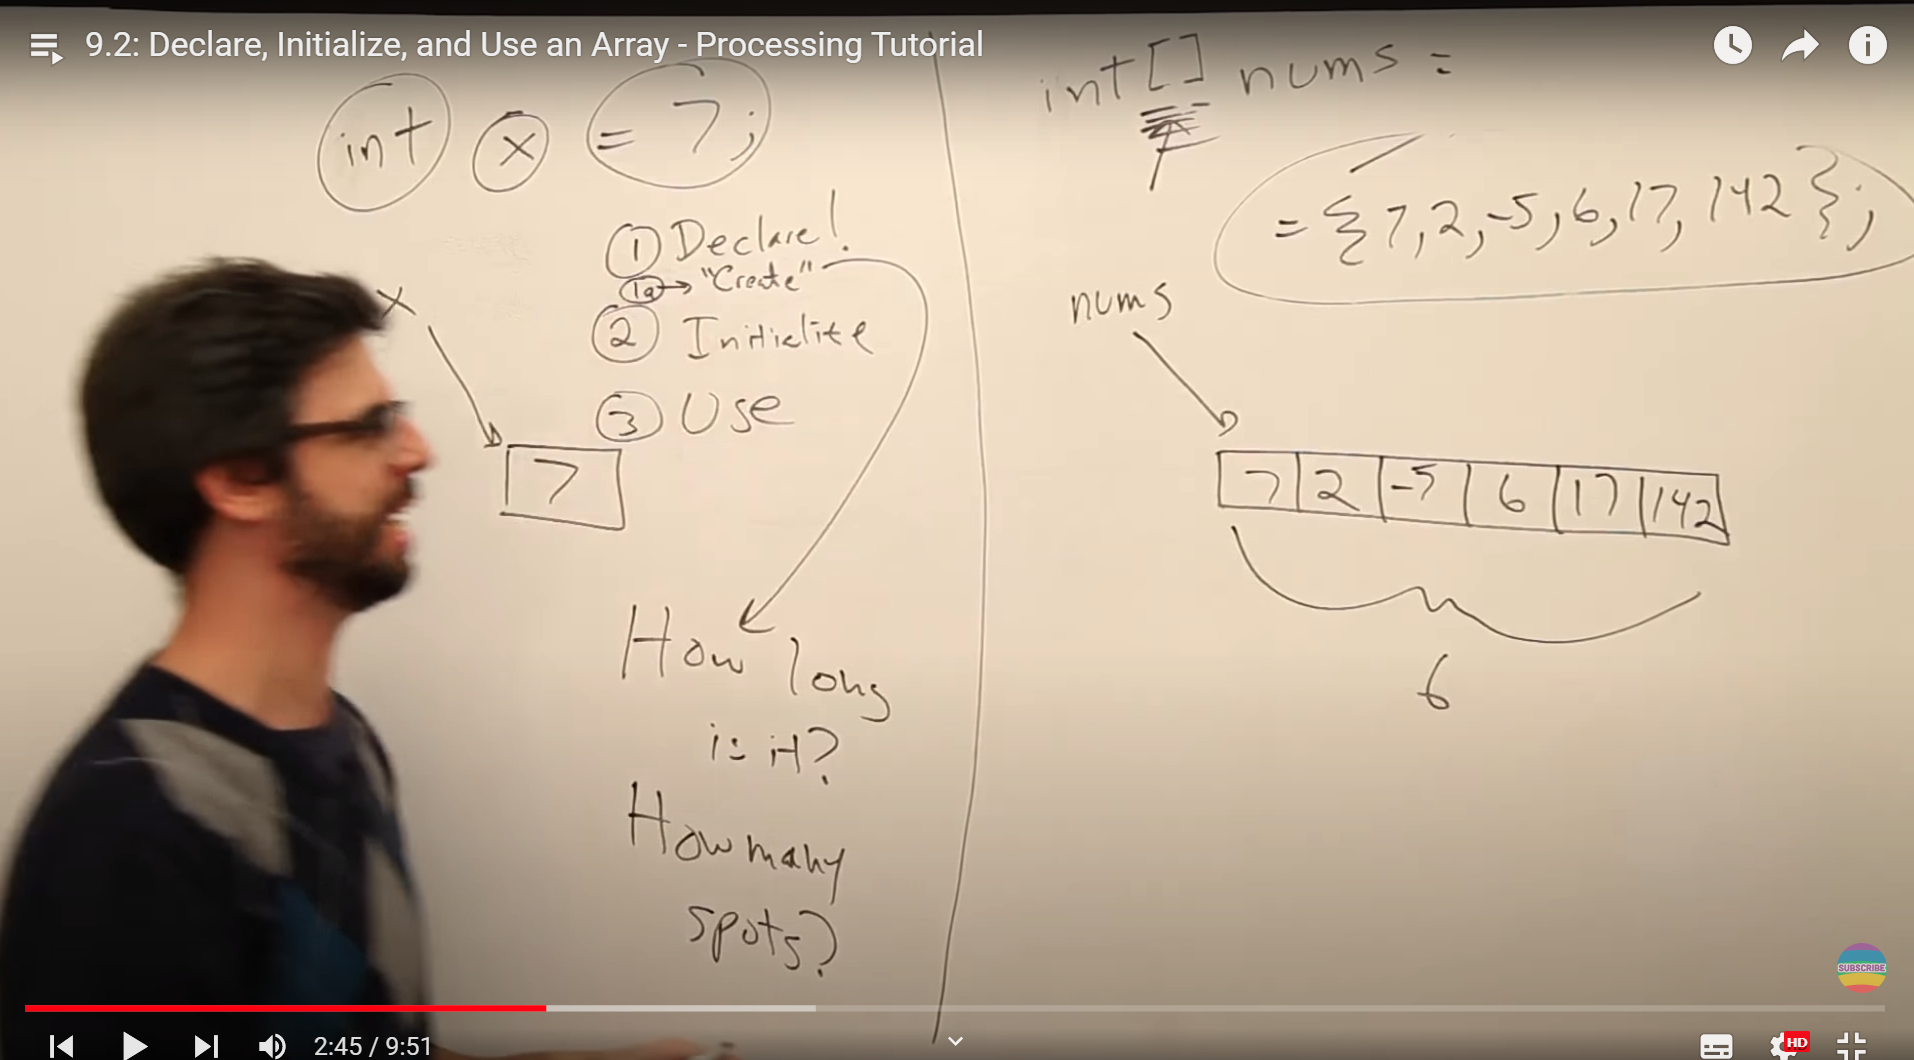 9.2: Declare, Initialize, and Use an Array - Processing Tutorial
int x = 7;
1 Declare!
1a → "Create"
2 Initialize
3 Use
x
7
How long
is it?
How many
spots?
int[] nums =
= {7, 2, -5, 6, 17, 142};
nums
7 2 -5 6 17 142
6
SUBSCRIBE
2:45 / 9:51
HD